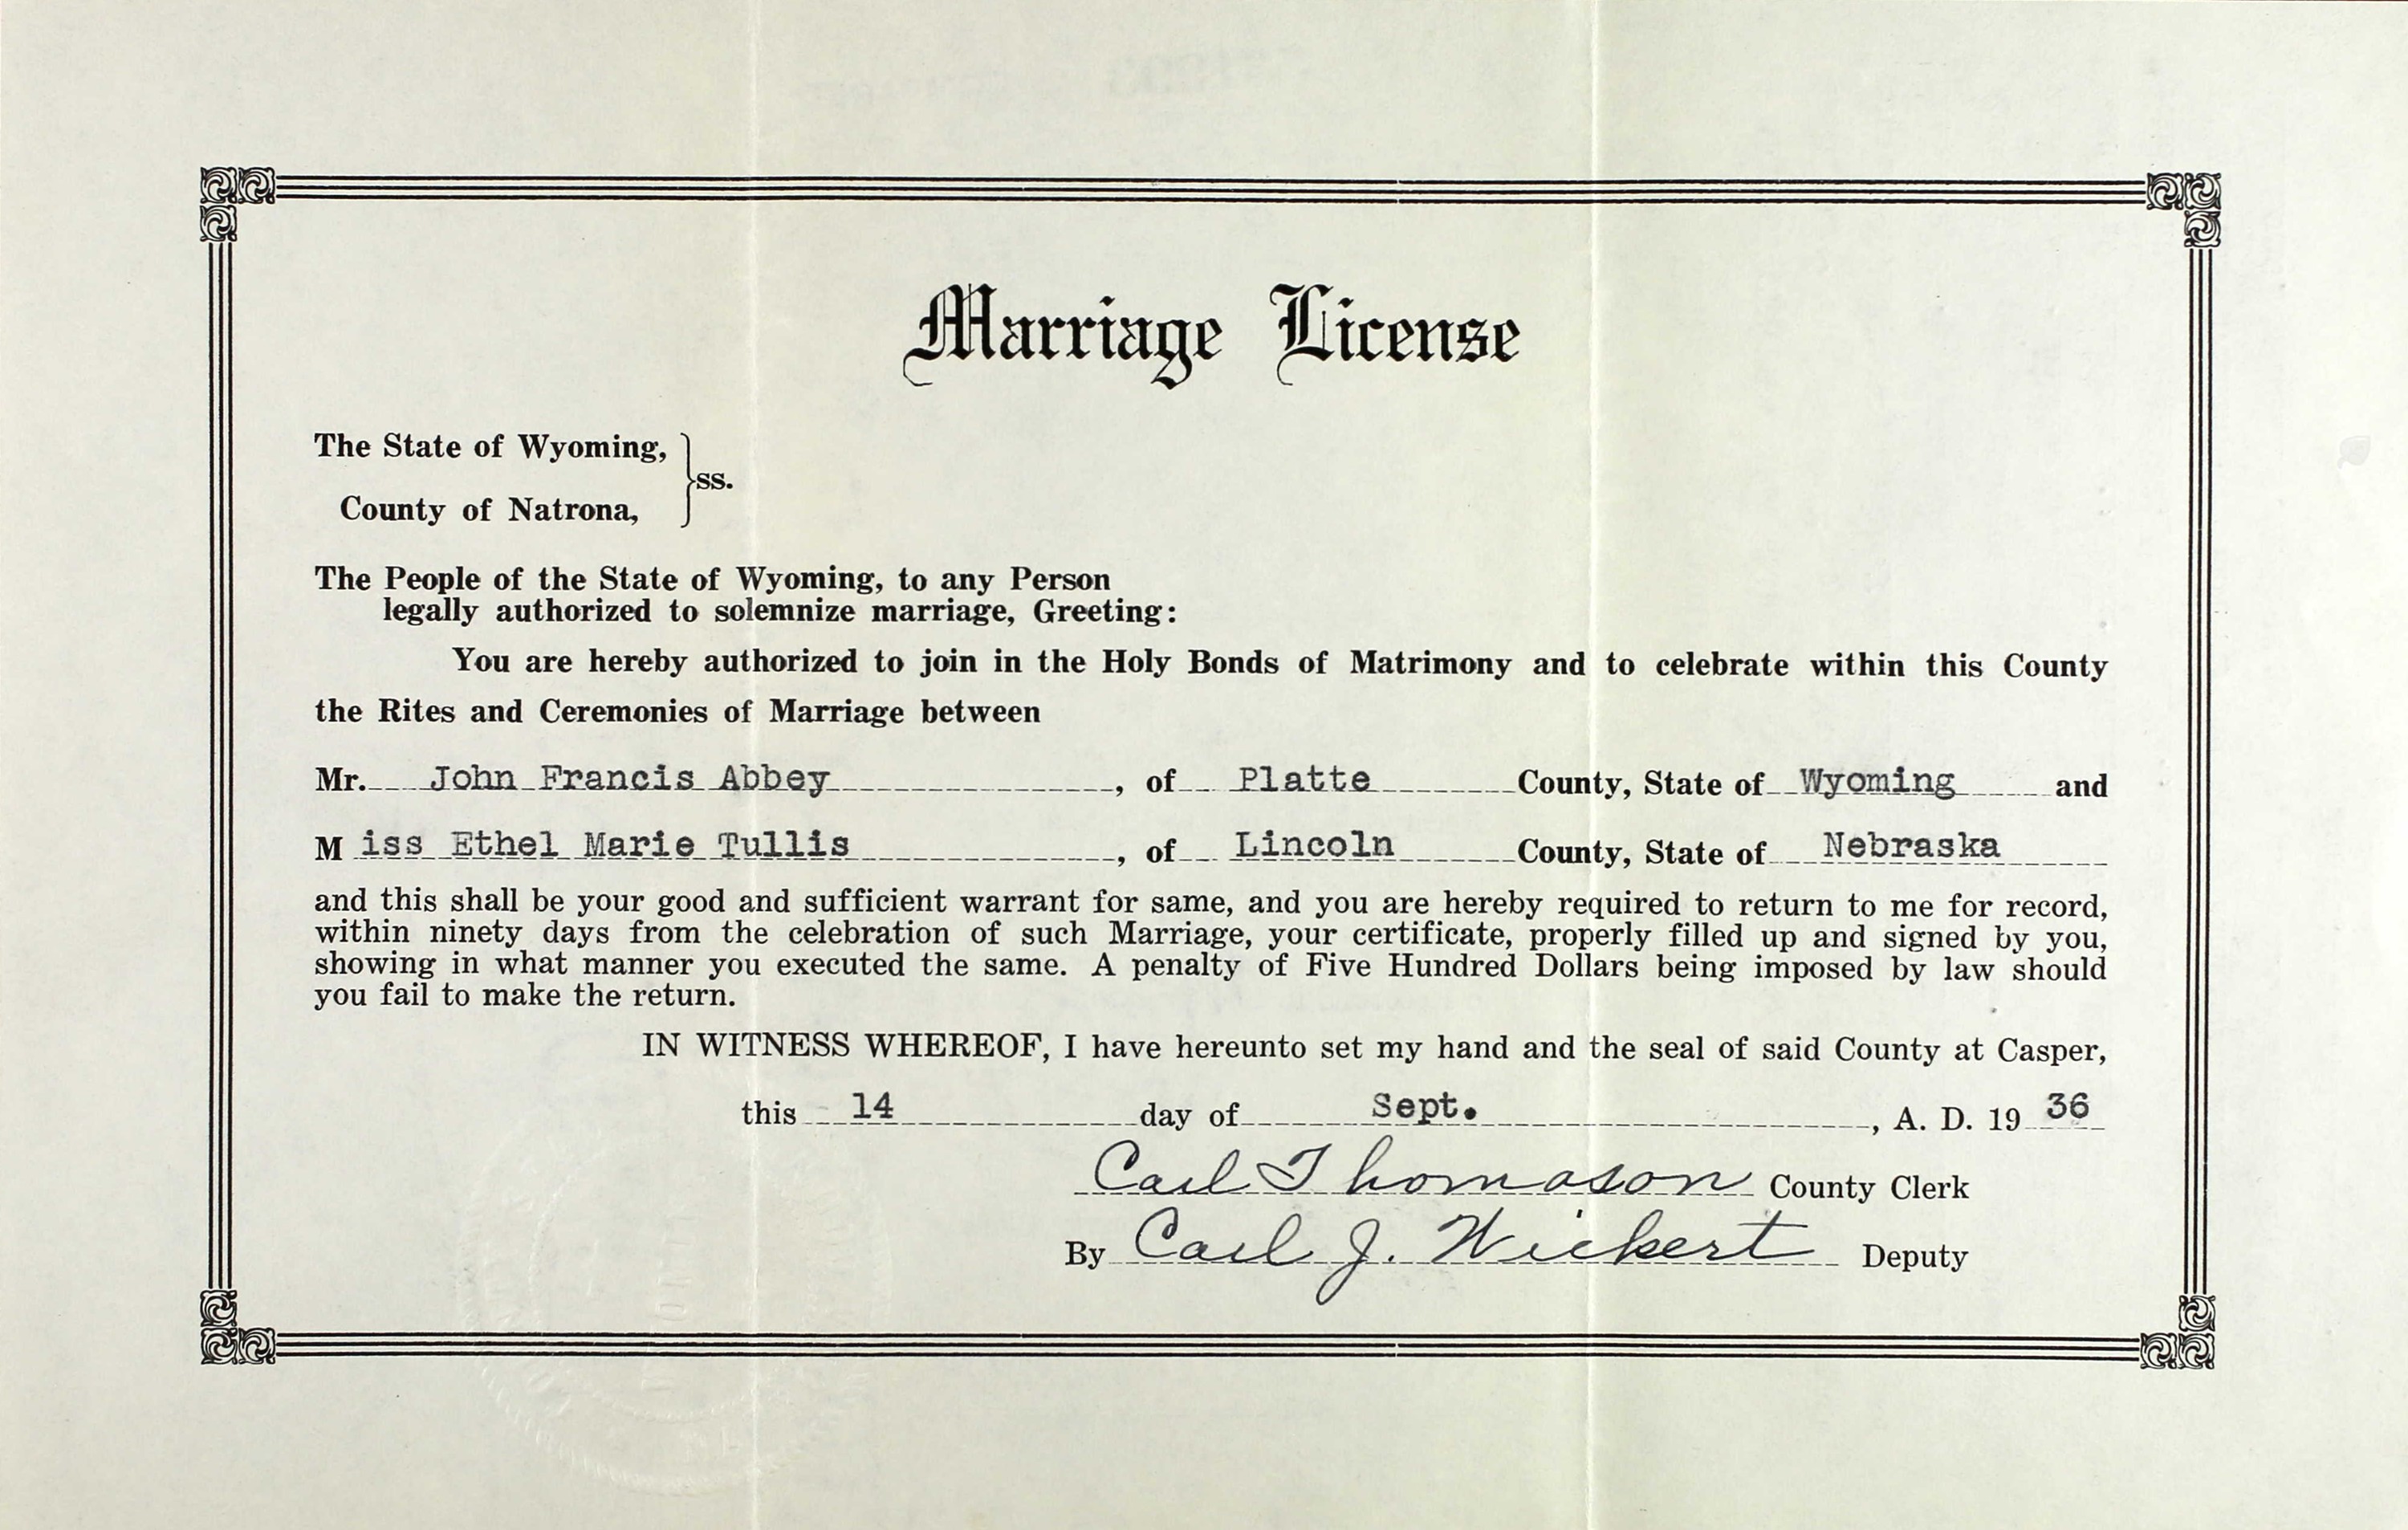 Marriage License
The State of Wyoming,
ss.
County of Natrona,
The People of the State of Wyoming, to any Person
legally authorized to solemnize marriage, Greeting:
You are hereby authorized to join in the Holy Bonds of Matrimony and to celebrate within this County
the Rites and Ceremonies of Marriage between
Mr. John Francis Abbey, of Platte County, State of Wyoming and
Miss Ethel Marie Tullis, of Lincoln County, State of Nebraska
and this shall be your good and sufficient warrant for same, and you are hereby required to return to me for record,
within ninety days from the celebration of such Marriage, your certificate, properly filled up and signed by you,
showing in what manner you executed the same. A penalty of Five Hundred Dollars being imposed by law should
you fail to make the return.
IN WITNESS WHEREOF, I have hereunto set my hand and the seal of said County at Casper,
this 14 day of Sept., A. D. 19 36
Carl Thomason County Clerk
By Carl J. Wickert Deputy